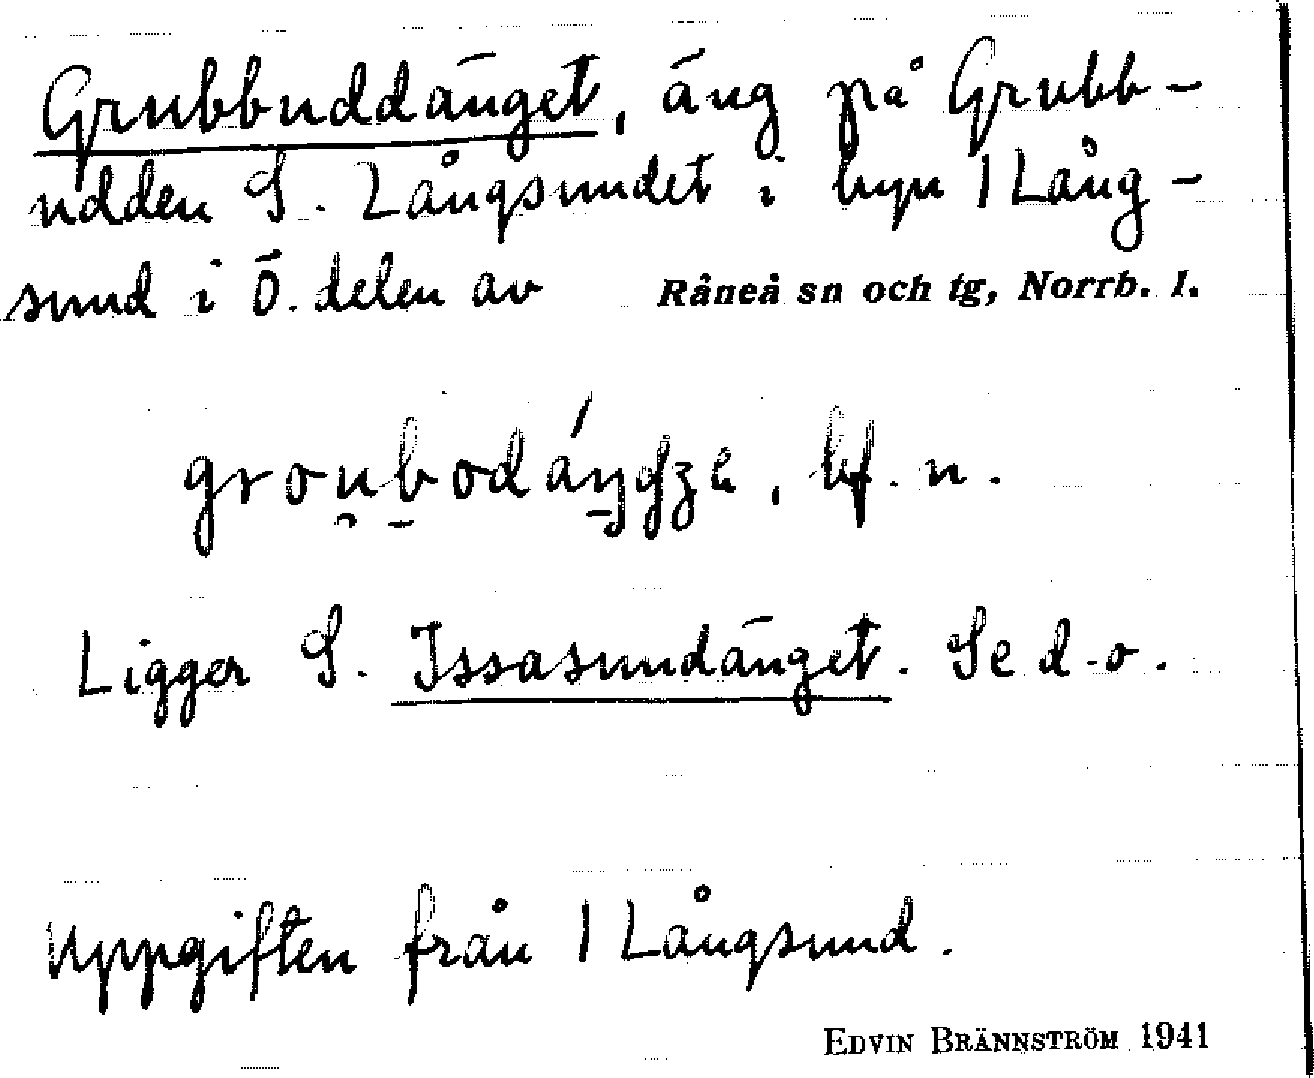 Grubbuddänget, äng på Grubb-
udden S. Långsundet i byn 1 Lång-
sund i Ö. delen av Råneå sn och tg, Norrb. l.
bf. n.
Ligger S. Issasundänget. Se d.o.
Uppgiften från 1 Långsund.
EDVIN BRÄNNSTRÖM 1941